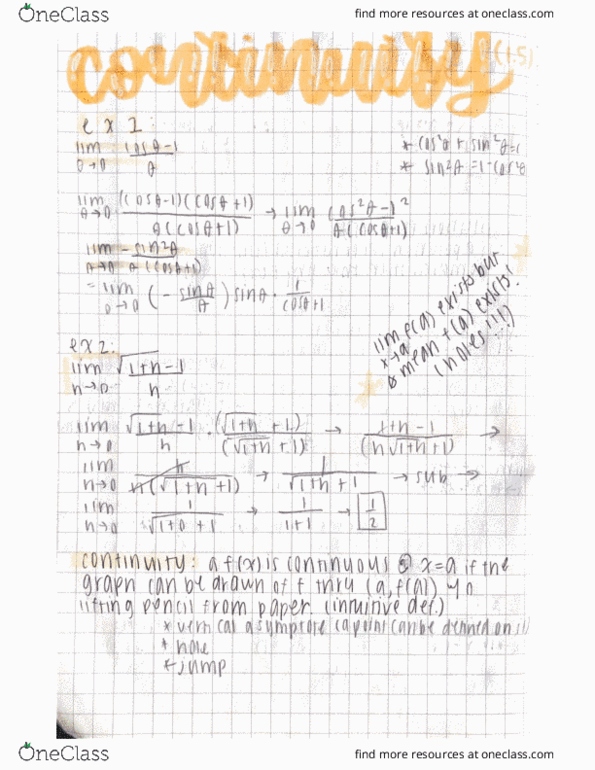 OneClass
find more resources at oneclass.com
continuity (1.5)
ex 1:
lim θ→0 (cosθ-1)/θ
* cos²θ + sin²θ=1
* sin²θ=1-cos²θ
lim θ→0 ((cosθ-1)(cosθ+1))/(θ(cosθ+1)) → lim θ→0 (cos²θ-1)²/(θ(cosθ+1))
lim θ→0 -sin²θ/(θ(cosθ+1))
= lim θ→0 (-sinθ/θ) sinθ · 1/(cosθ+1)
lim f(a) exists but
x→a
mean f(a) exists!
(holes!!!)
ex 2:
lim h→0 (√1+h -1)/h
lim h→0 (√1+h -1)/h · (√1+h +1)/(√1+h +1) → (1+h-1)/(h√1+h+1) →
lim h→0 h/(h(√1+h+1)) → 1/(√1+h+1) → sub →
lim h→0 1/(√1+0+1) → 1/(1+1) → 1/2
continuity: a f(x) is continuous @ x=a if the
graph can be drawn of f thru (a,f(a)) w/o
lifting pencil from paper. (intuitive def.)
* vertical asymptote (a point can be defined on it)
* hole
* jump
OneClass
find more resources at oneclass.com